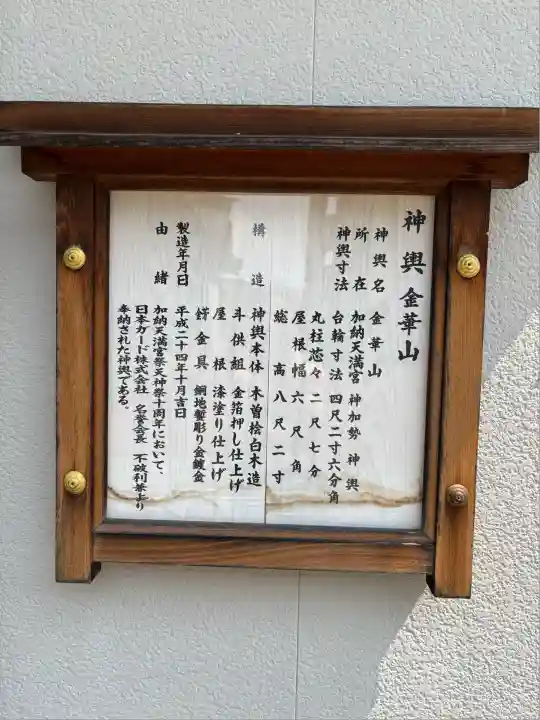 神輿 金華山
神輿名 金華山
所在 加納天満宮 神加勢 神輿
神輿寸法 台輪寸法 四尺二寸六分角
丸柱芯々 二尺七分
屋根幅 六尺角
総高 八尺二寸
構造 神輿本体 木曽桧白木造
斗供組 金箔押し仕上げ
屋根 漆塗り仕上げ
錺金具 銅地鏨彫り金鍍金
製造年月日 平成二十四年十月吉日
由緒 加納天満宮祭天神祭十周年において、
日本カード株式会社 名誉会長 不破利兼より
奉納された神輿である。